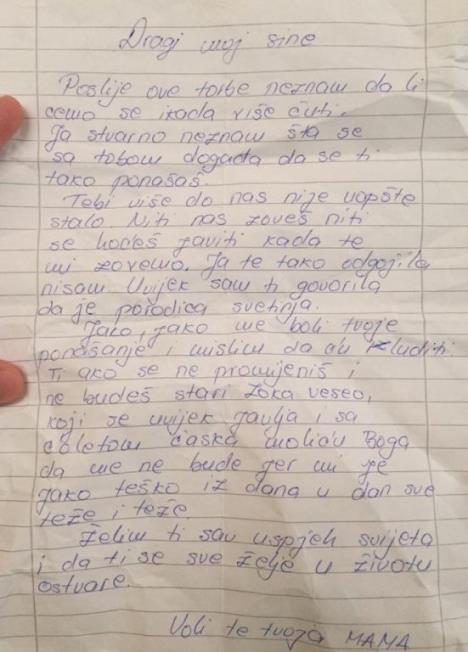 Dragi moj sine
Poslije ove torbe neznam da li
ćemo se ikada više čuti.
Ja stvarno neznam šta se
sa tobom događa da se ti
tako ponašaš.
Tebi više do nas nije uopšte
stalo Niti nas zoveš niti
se hoćeš javiti kada te
mi zovemo. Ja te tako odgojila
nisam Uvijek sam ti govorila
da je porodica svetinja.
Jako, jako me boli tvoje
ponašanje i mislim da ću izluditi
Ti ako se ne promijeniš i
ne budeš stari Zoka veseo,
koji se uvijek javlja i sa
ćaletom ćaska moliću Boga
da me ne bude jer mi je
jako teško iz dana u dan sve
teže i teže
Želim ti sav uspjeh svijeta
i da ti se sve želje u životu
ostvare.
Voli te tvoja MAMA